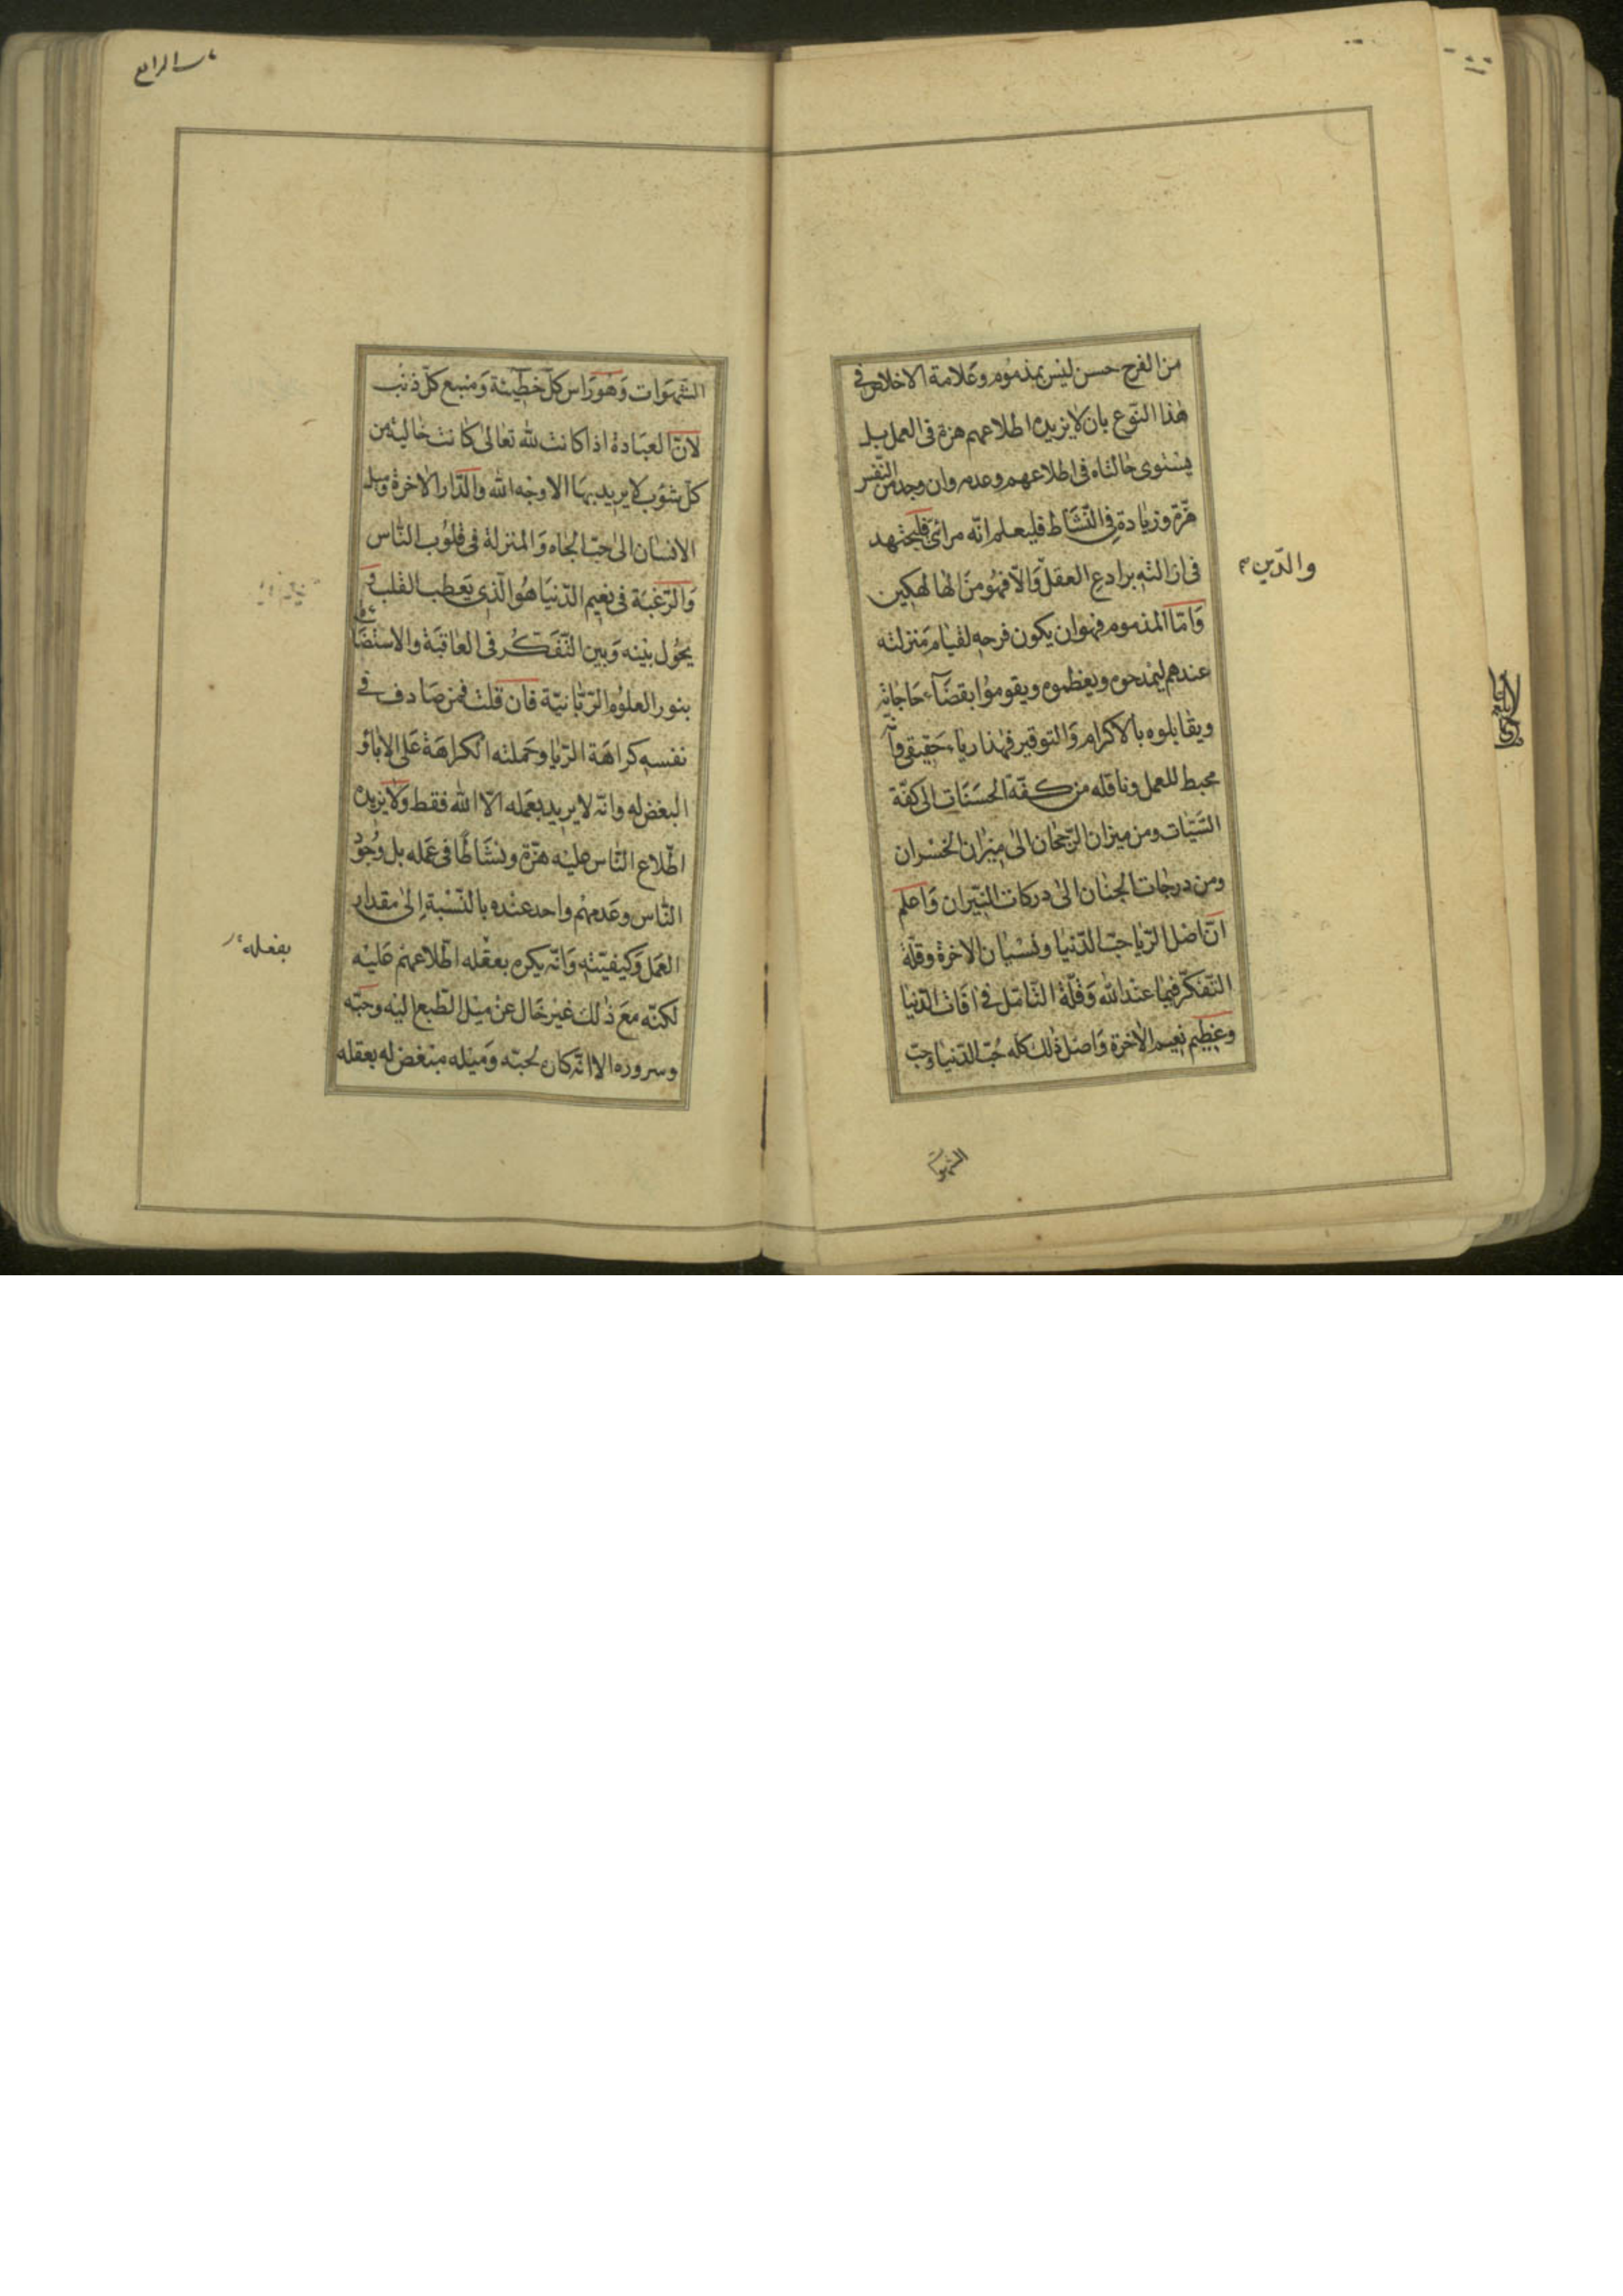 من الفرح حسن ليس بمذموم وعلامة الاخلاص في
هذا النوع بان لا يزيده اطلاعهم هزة في العمل بل
يستوى حالتاه في اطلاعهم وعدمه وان وجد من النفس
هزة وزيادة في النشاط فليعلم انه مرائى فليجتهد
في ازالته برادع العقل والا فهو من الهالكين
والدين
واما المذموم فهو ان يكون فرحه لقيام منزلته
عندهم ليمدحوه ويعظموه ويقوموا بقضاء حاجاته
ويقابلوه بالاكرام والتوقير فهذا رياء حقيقى وانه
محبط للعمل وناقله من كفة الحسنات الى كفة
السيات ومن ميزان الرجحان الى ميزان الخسران
ومن درجات الجنان الى دركات النيران واعلم
ان اصل الريا حب الدنيا ونسيان الاخرة وقلة
التفكر فيما عند الله وقلة التامل في افات الدنيا
وعظيم نعيم الاخرة واصل ذلك كله حب الدنيا وحب
الشهوات
الرابع
الشهوات وهو راس كل خطيئة ومنبع كل ذنب
لان العبادة اذا كانت لله تعالى كانت خالية من
كل شوب لا يريد بها الا وجه الله والدار الاخرة وميل
الانسان الى حب الجاه والمنزلة في قلوب الناس
والرغبة في نعيم الدنيا هو الذي يعطب القلب و
يحول بينه وبين التفكر في العاقبة والاستضاءة
بنور العلوم الربانية فان قلت فمن صادف في
نفسه كراهة الريا وحملته الكراهة على الاباء و
البغض له وانه لا يريد بعمله الا الله فقط ولا يزيده
اطلاع الناس عليه هزة ونشاطا في عمله بل وجود
الناس وعدمهم واحد عنده بالنسبة إلى مقدار
العمل وكيفيته وانه يكره بعقله اطلاعهم عليه
بفعله
لكنه مع ذلك غير خال عن ميل الطبع اليه وحبه
وسروره الا انه كان لحبه وميله مبغض له بعقله